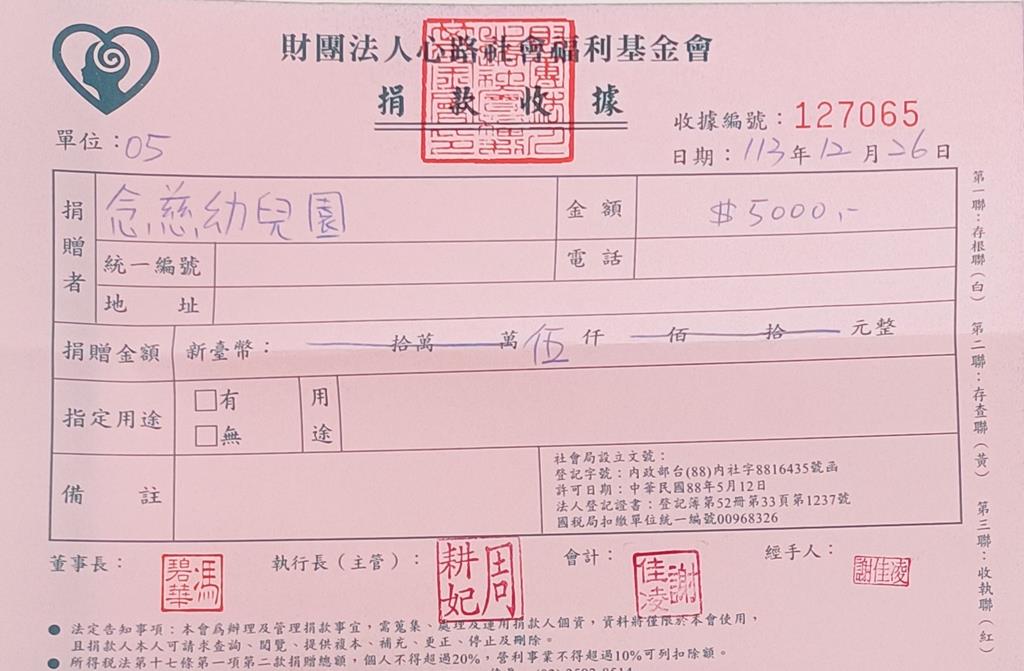 財團法人心路社會福利基金會
捐款收據
收據編號：127065
單位：05
日期：113年12月26日
捐贈者
念慈幼兒園
金額
$5000.-
統一編號
電話
地址
捐贈金額
新臺幣： 拾萬 萬 伍 仟 佰 拾 元整
指定用途
□有
□無
用途
備註
社會局設立文號：
登記字號：內政部台(88)內社字8816435號函
許可日期：中華民國88年5月12日
法人登記證書：登記簿第52冊第33頁第1237號
國稅局扣繳單位統一編號00968326
第一聯：存根聯(白)
第二聯：存查聯(黃)
第三聯：收執聯(紅)
董事長：
馮碧華
執行長（主管）：
周耕妃
會計：
謝佳凌
經手人：
謝佳凌
● 法定告知事項：本會為辦理及管理捐款事宜，需蒐集、處理及運用捐款人個資，資料將僅限於本會使用，
且捐款人本人可請求查詢、閱覽、提供複本、補充、更正、停止及刪除。
● 所得稅法第十七條第一項第二款捐贈總額，個人不得超過20%，營利事業不得超過10%可列扣除額。